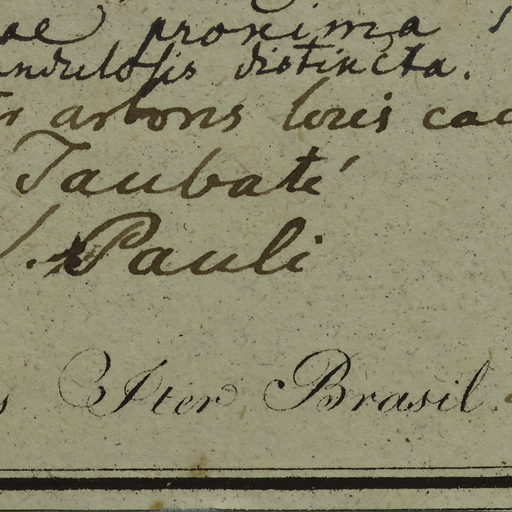 ae proxima
andulosis distincta.
arboris locis
Taubaté
Pauli
s Iter Brasil.